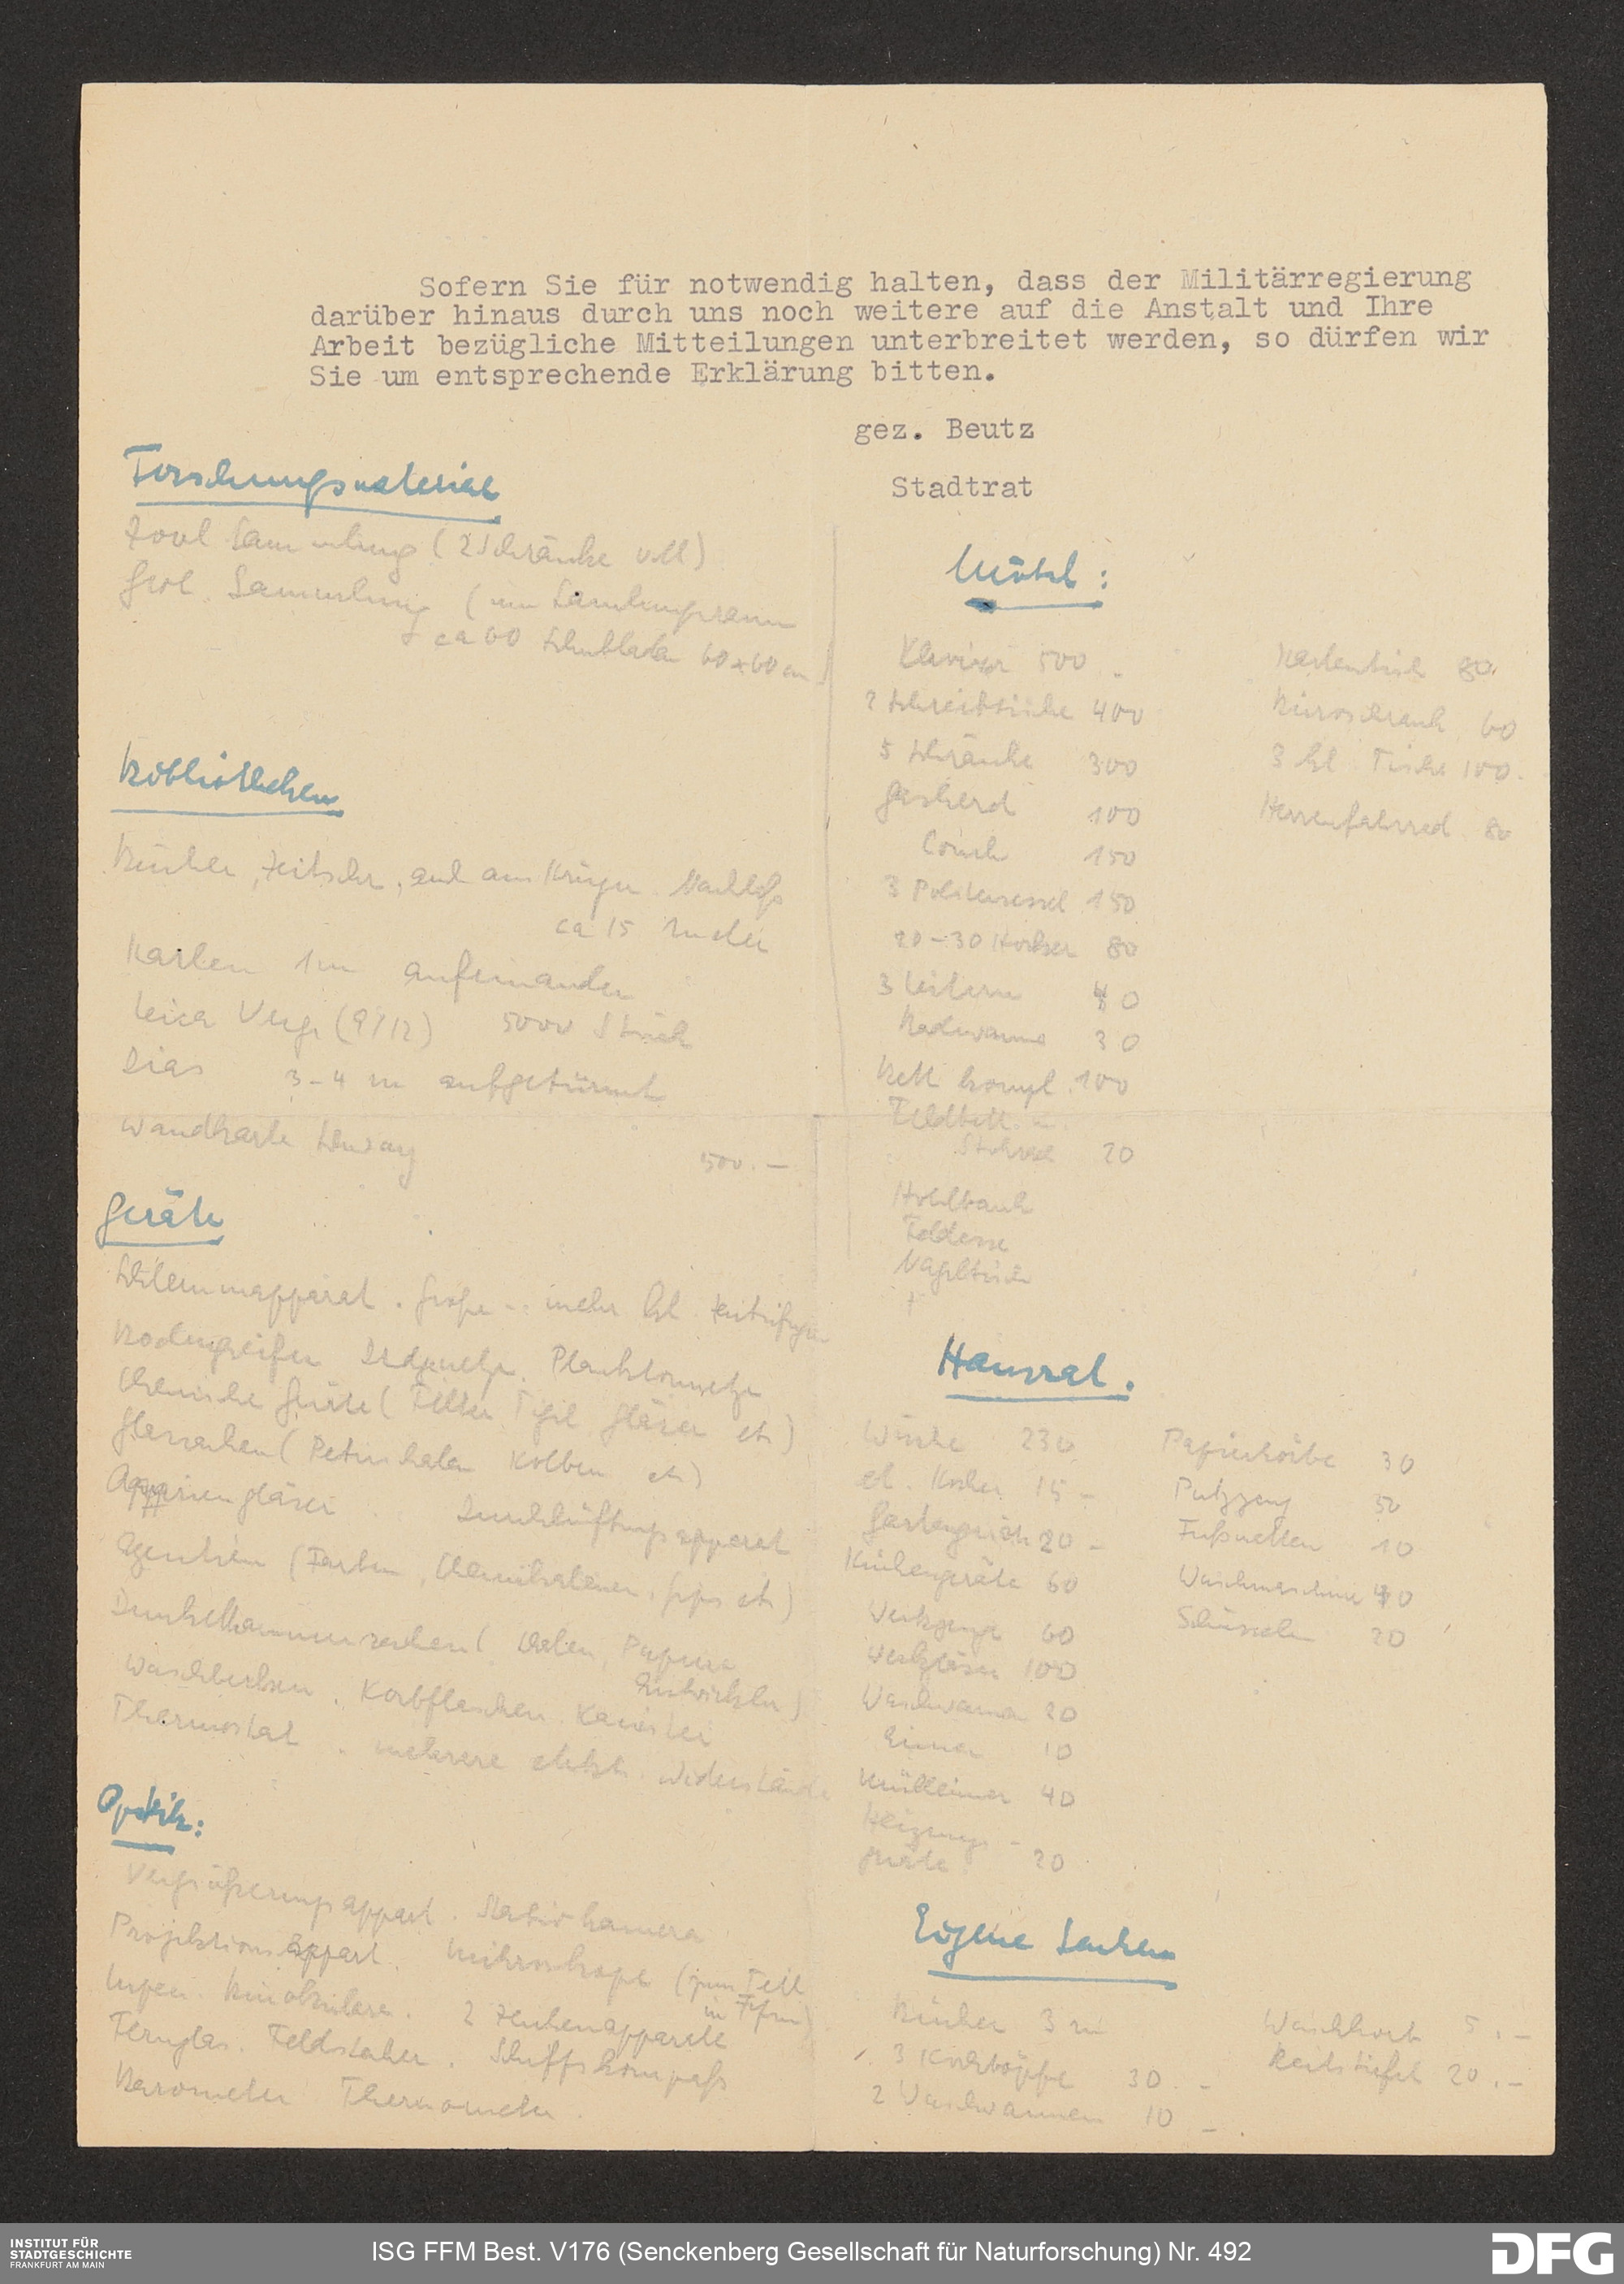 Sofern Sie für notwendig halten, dass der Militärregierung
darüber hinaus durch uns noch weitere auf die Anstalt und Ihre
Arbeit bezügliche Mitteilungen unterbreitet werden, so dürfen wir
Sie um entsprechende Erklärung bitten.
gez. Beutz
Stadtrat
Forschungsmaterial
Zool Sammlung (2 Schränke voll)
Geol. Sammlung (im
+ ca 60 Schubladen 60x60 cm)
Bibliotheken
Bücher, Zeitschr, auch aus Krüger Nachlaß
ca 15 Meter
Karten 1 m aufeinander
Leica Vergr (9/12) 5000 Stück
Dias 3-4 m aufgetürmt
Wandkarte
500.-
Geräte
Schlemmapparat. Große u. mehr kl Zentrifugen
Bodengreifer Planktonnetze
Chemische Geräte (Filter Tigel Gläser etc)
Glassachen (Petrischalen Kolben etc)
Aquariengläser Durchlüftungsapparat
Agentien (Farben, Chemikalien, Gips etc)
Dunkelkammersachen (Schalen, Papiere
Entwickler)
Waschbecken. Korbflaschen. Kanister
Thermostat. mehrere elektr. Widerstände
Optik:
Vergrößerungsappart. Stativkamera
Projektionsappart. Mikroskope (zum Teil
in Ffm)
Lupen. Binokulare. 2 Zeichenapparate
Fernglas. Feldstecher. Schiffskompaß
Barometer Thermometer.
Möbel:
Klavier 500.-
2 Schreibtische 400
5 Schränke 300
Gasherd 100
Couch 150
3 Polstersessel 150
20-30 Hocker 80
3 Leitern 40
Badewanne 30
Bett kompl. 100
Feldbett
20
Hobelbank
Feldesse
Kartentisch 80.
Büroschrank 60
3 kl. Tische 100.-
Herrenfahrrad 80
Hausrat.
Wäsche 230
el. Kocher 15 -
Gartengeräte 20 -
Küchengeräte 60
Werkzeuge 60
Weckgläser 100
Waschwannen 20
Eimer 10
Mülleimer 40
Heizungs-
geräte 20
Papierkörbe 30
Putzzeug 50
Fußmatten 10
Waschmaschine 40
Schüsseln 20
Eigene Sachen
Bücher 3 m
3 Kochtöpfe 30.-
2 Waschwannen 10.-
Waschkorb 5.-
Reitstiefel 20.-
INSTITUT FÜR
STADTGESCHICHTE
FRANKFURT AM MAIN
ISG FFM Best. V176 (Senckenberg Gesellschaft für Naturforschung) Nr. 492
DFG